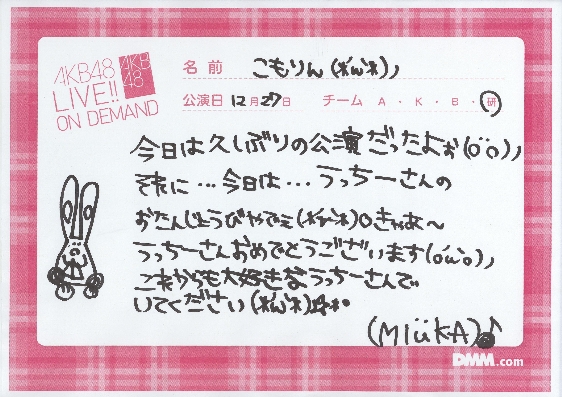 AKB48
LIVE!!
ON DEMAND
AKB
48
名前 こもりん(*´ω`*)ノ
公演日 12月27日 チーム A・K・B・研
今日は久しぶりの公演だったよぉ(öo)ノ
それに…今日は…うっちーさんの
おたんじょうびやでぇ(*´ω`*)oきゃあ〜
うっちーさんおめでとうございます(o´ω`o)ノ
これからも大好きなうっちーさんで
いてください(*´ω`*)
(MIüKA)♪
DMM.com